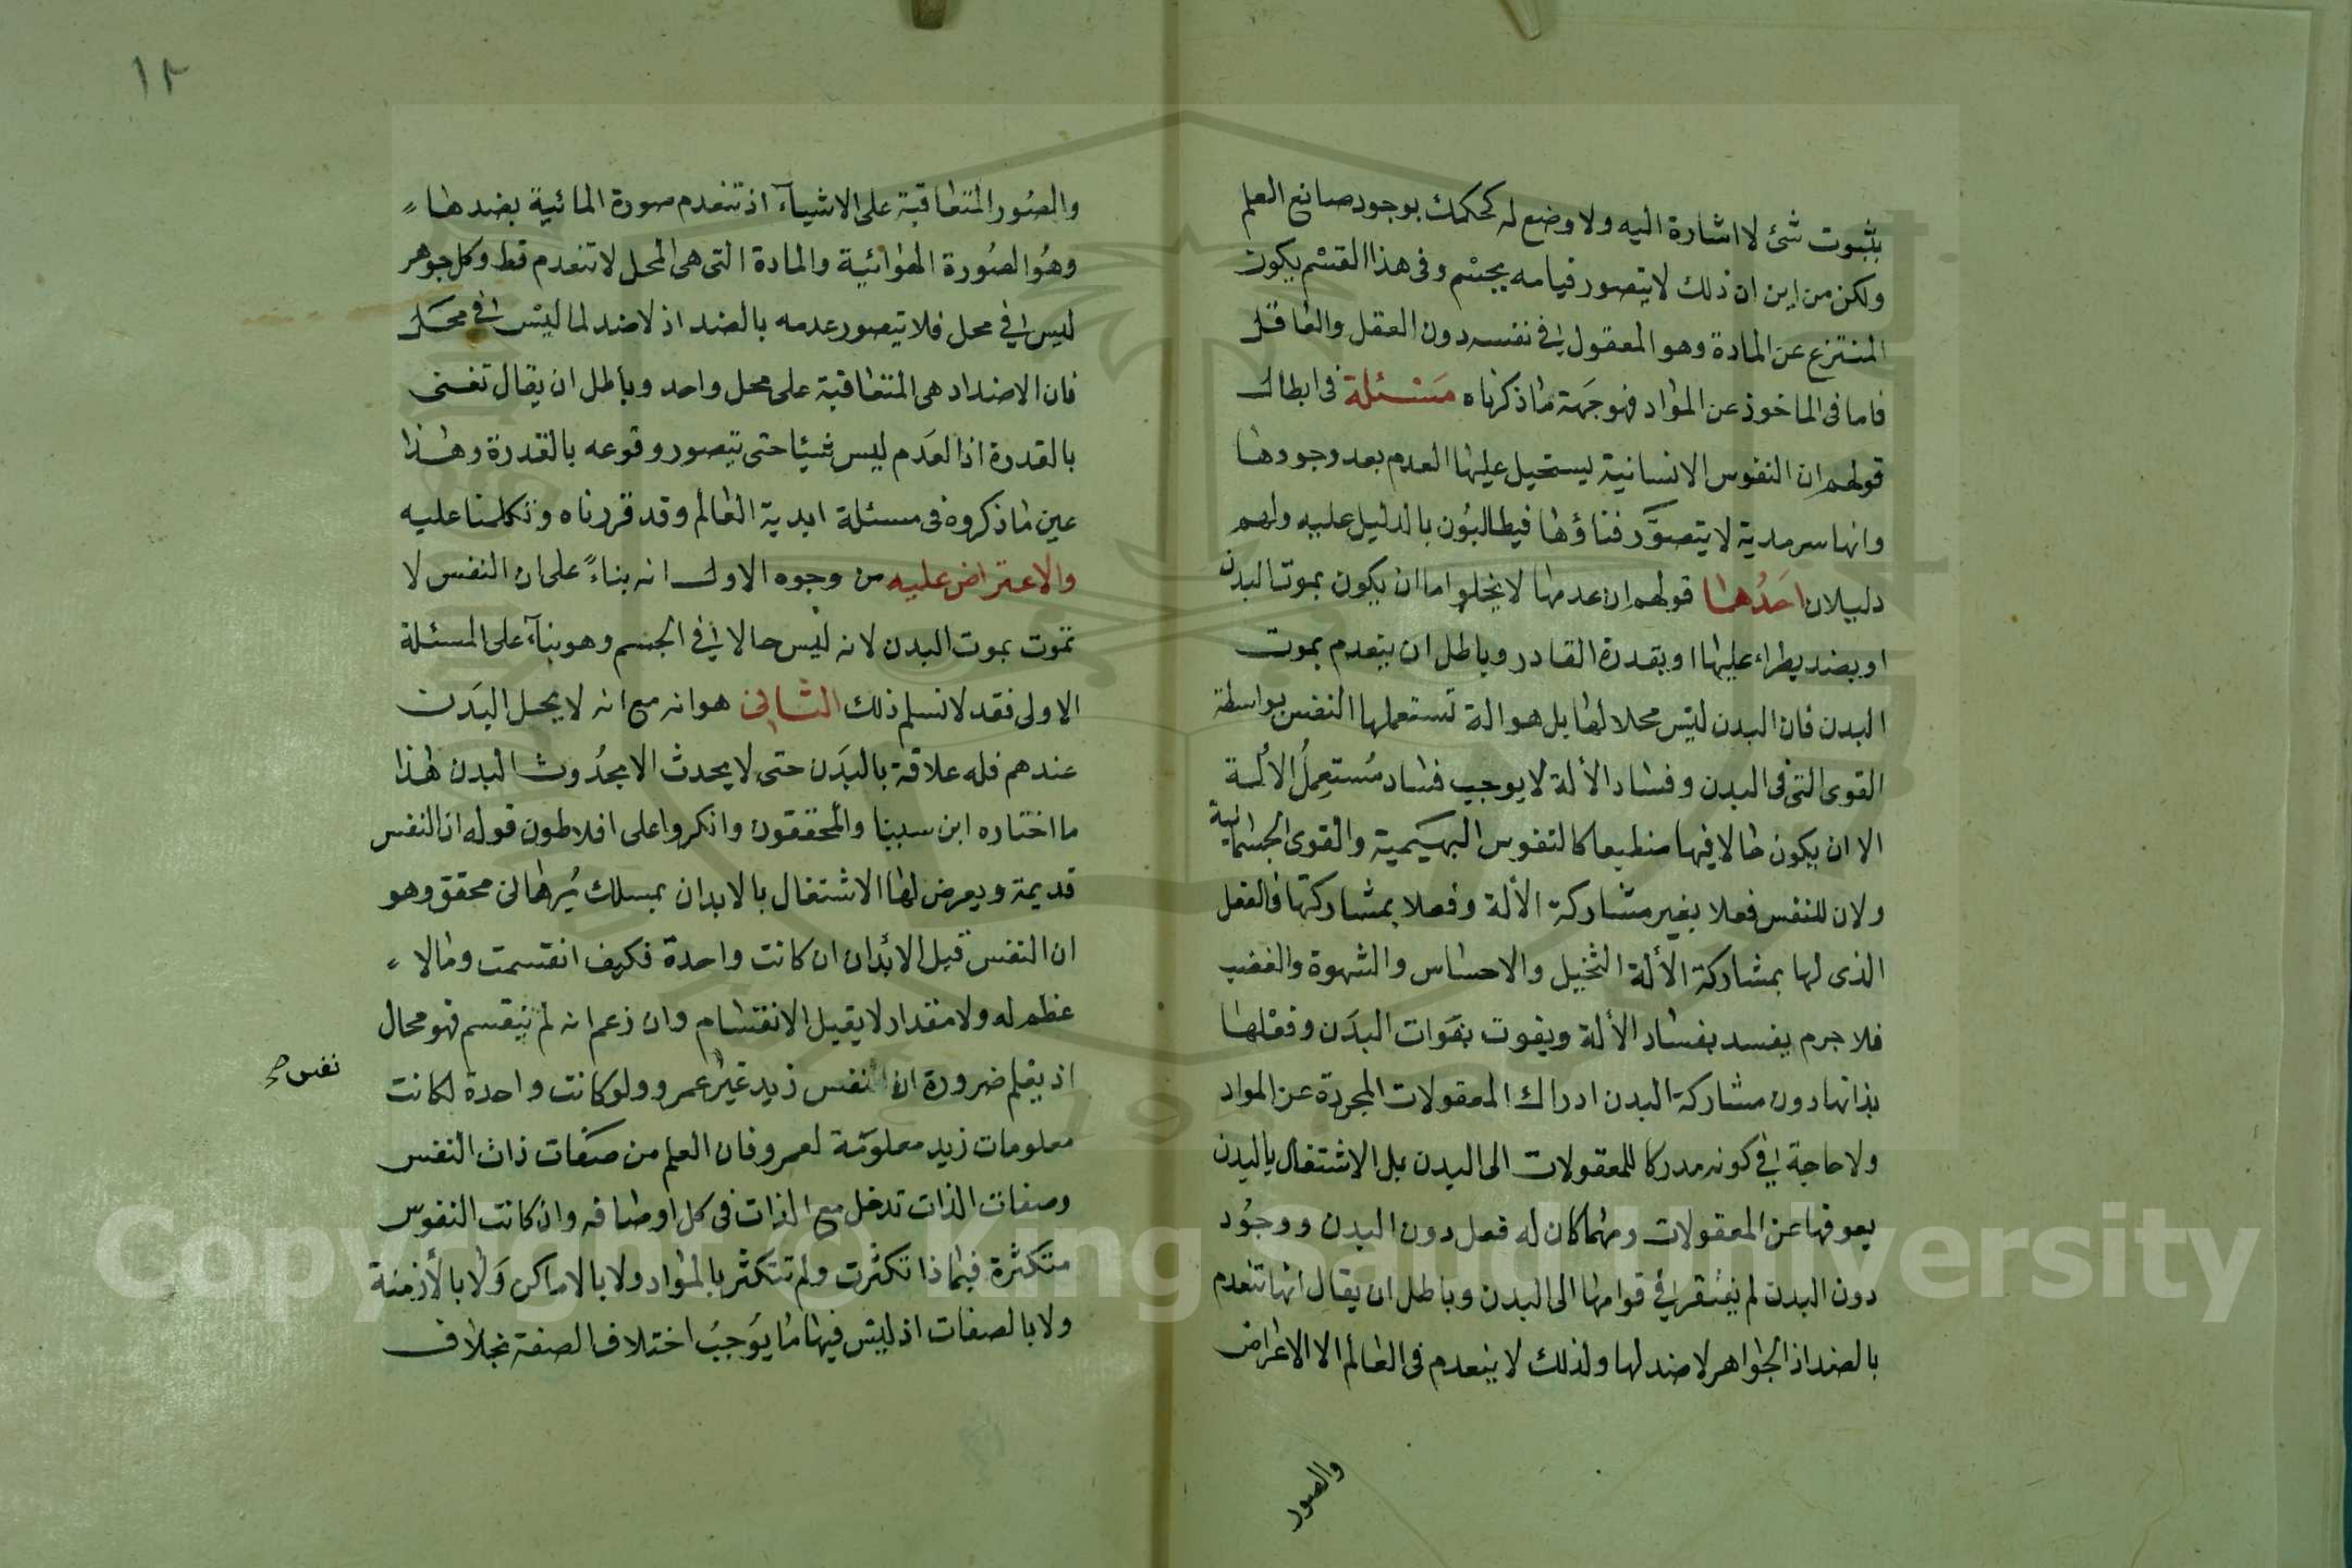 بثبوت شئ لا اشارة اليه ولا وضع له كحكمك بوجود صانع العلم
ولكن من اين ان ذلك لا يتصور قيامه بجسم وفى هذا القسم يكون
المنتزع عن المادة وهو المعقول فى نفسه دون العقل والعاقل
فاما فى الماخوذ عن المواد فهو جهة ما ذكرناه مسئلة فى ابطال
قولهم ان النفوس الانسانية يستحيل عليها العدم بعد وجودها
وانها سرمدية لا يتصوَّر فناؤها فيطالبُون بالدليل عليه ولهم
دليلان احَدُهما قولهم ان عدمها لا يخلو اما ان يكون بموت البدن
او بضد يطراء عليها او بقدرة القادر وباطل ان ينعدم بموت
البدن فان البدن ليس محلا لها بل هو الة تستعملها النفس بواسطة
القوى التى فى البدن وفساد الألة لا يوجب فساد مُستعمِل الألة
الا ان يكون حالا فيها منطبعا كالنفوس البهيمية والقوى الجسمانية
ولان للنفس فعلا بغير مشاركة الألة وفعلا بمشاركتها فالفعل
الذى لها بمشاركة الألة التخيل والاحساس والشهوة والغضب
فلا جرم يفسد بفساد الألة ويفوت بفوات البدَن وفعلها
بذاتها دون مشاركة البدن ادراك المعقولات المجردة عن المواد
ولا حاجة فى كونه مدركا للمعقولات الى البدن بل الاشتغال بالبدن
يعوقها عن المعقولات ومهما كان له فعل دون البدن ووجُود
دون البدن لم يفتقر فى قوامها الى البدن وباطل ان يقال انها تنعدم
بالضد اذ الجواهر لا ضد لها ولذلك لا ينعدم فى العالم الا الاعراض
والصور
١٢
والصُور المتعاقبة على الاشيآء اذ تنعدم صورة المائية بضدها
وهُو الصُورة الهوائية والمادة التى هى المحل لا تنعدم قط وكل جوهر
ليس فى محل فلا يتصور عدمه بالضد اذ لا ضد لما ليس فى محَل
فان الاضداد هى المتعاقبة على محل واحد وباطل ان يقال تفنى
بالقدرة اذ العَدم ليس شيئا حتى يتصور وقوعه بالقدرة وهذا
عين ما ذكروه فى مسئلة ابدية العالم وقد قررناه وتكلمنا عليه
والاعتراض عليه من وجوه الاول انه بناءً على ان النفس لا
تموت بموت البدن لانه ليس حالا فى الجسم وهو بنآء على المسئلة
الاولى فقد لا نسلم ذلك الثانى هو انه مع انه لا يحل البدَن
عندهم فله علاقة بالبدَن حتى لا يحدث الا بحدُوث البدن هذا
ما اختاره ابن سينا والمحققون وانكروا على افلاطون قوله ان النفس
قديمة ويعرض لها الاشتغال بالابدان بمسلك بُرهانى محقق وهو
ان النفس قبل الأبدان ان كانت واحدة فكيف انقسمت وما لا
عظم له ولا مقدار لا يقبل الانقسام وان زعم انه لم ينقسم فهو محال
اذ يعلم ضرورة ان نفس زيد غير عمرو ولو كانت واحدة لكانت
نفس صح
معلومات زيد معلومَة لعمرو فان العلم من صفَات ذات النفس
وصفات الذات تدخل مع الذات فى كل اوصافه وان كانت النفوس
متكثرة فبماذا تكثرت ولم تتكثر بالمواد ولا بالاماكن وَلا بالأزمنة
ولا بالصفات اذ ليس فيها ما يوَجبُ اختلاف الصفة بخلاف
Copyright © King Saud University